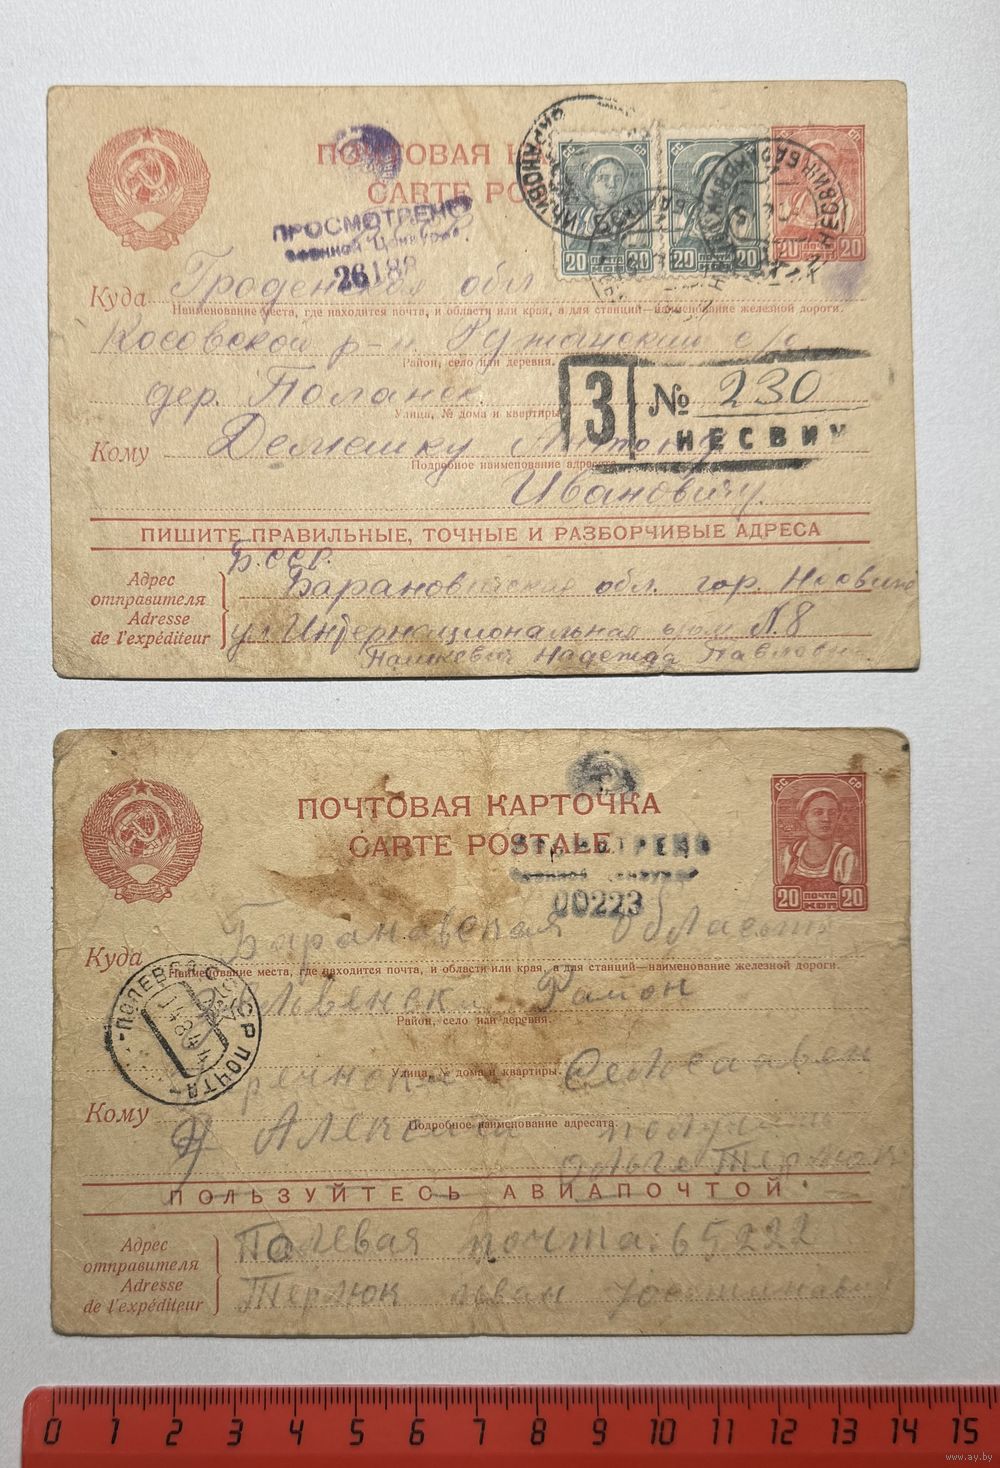 ПОЧТОВАЯ
CARTE
ПРОСМОТРЕНО
Военной Цензурой
26188
СС СП
20 КОП 20
20 20
20 20
Куда Гроденская обл
Наименование места, где находится почта, и области или края, а для станций—наименование железной дороги.
Косовской р-н Ружанский с/с
Район, село или деревня.
дер. Поланск
Улица, № дома и квартиры
З № 230
НЕСВИЖ
Кому Демешку Антону
Подробное наименование адресата
Ивановичу
ПИШИТЕ ПРАВИЛЬНЫЕ, ТОЧНЫЕ И РАЗБОРЧИВЫЕ АДРЕСА
Б.ССР.
Адрес отправителя
Adresse de l'expéditeur
Барановичская обл. гор. Несвиж
ул Интернациональная дом N.8
Пашкевич Надежда Павловн
ПОЧТОВАЯ КАРТОЧКА
CARTE POSTALE
00223
20 ПОЧТА 20
КОП
Куда Барановская область
Наименование места, где находится почта, и области или края, а для станций—наименование железной дороги.
Район
Район, село или деревня.
ПОЛЕВАЯ ПОЧТА
Улица, № дома и квартиры.
Сельсавен
Кому
Подробное наименование адресата.
Алексеи получить
Ольге Терлюк
ПОЛЬЗУЙТЕСЬ АВИАПОЧТОЙ
Адрес отправителя
Adresse de l'expéditeur
Полевая почта. 65222
Терлюк иван
0 1 2 3 4 5 6 7 8 9 10 11 12 13 14 15
www.ay.by